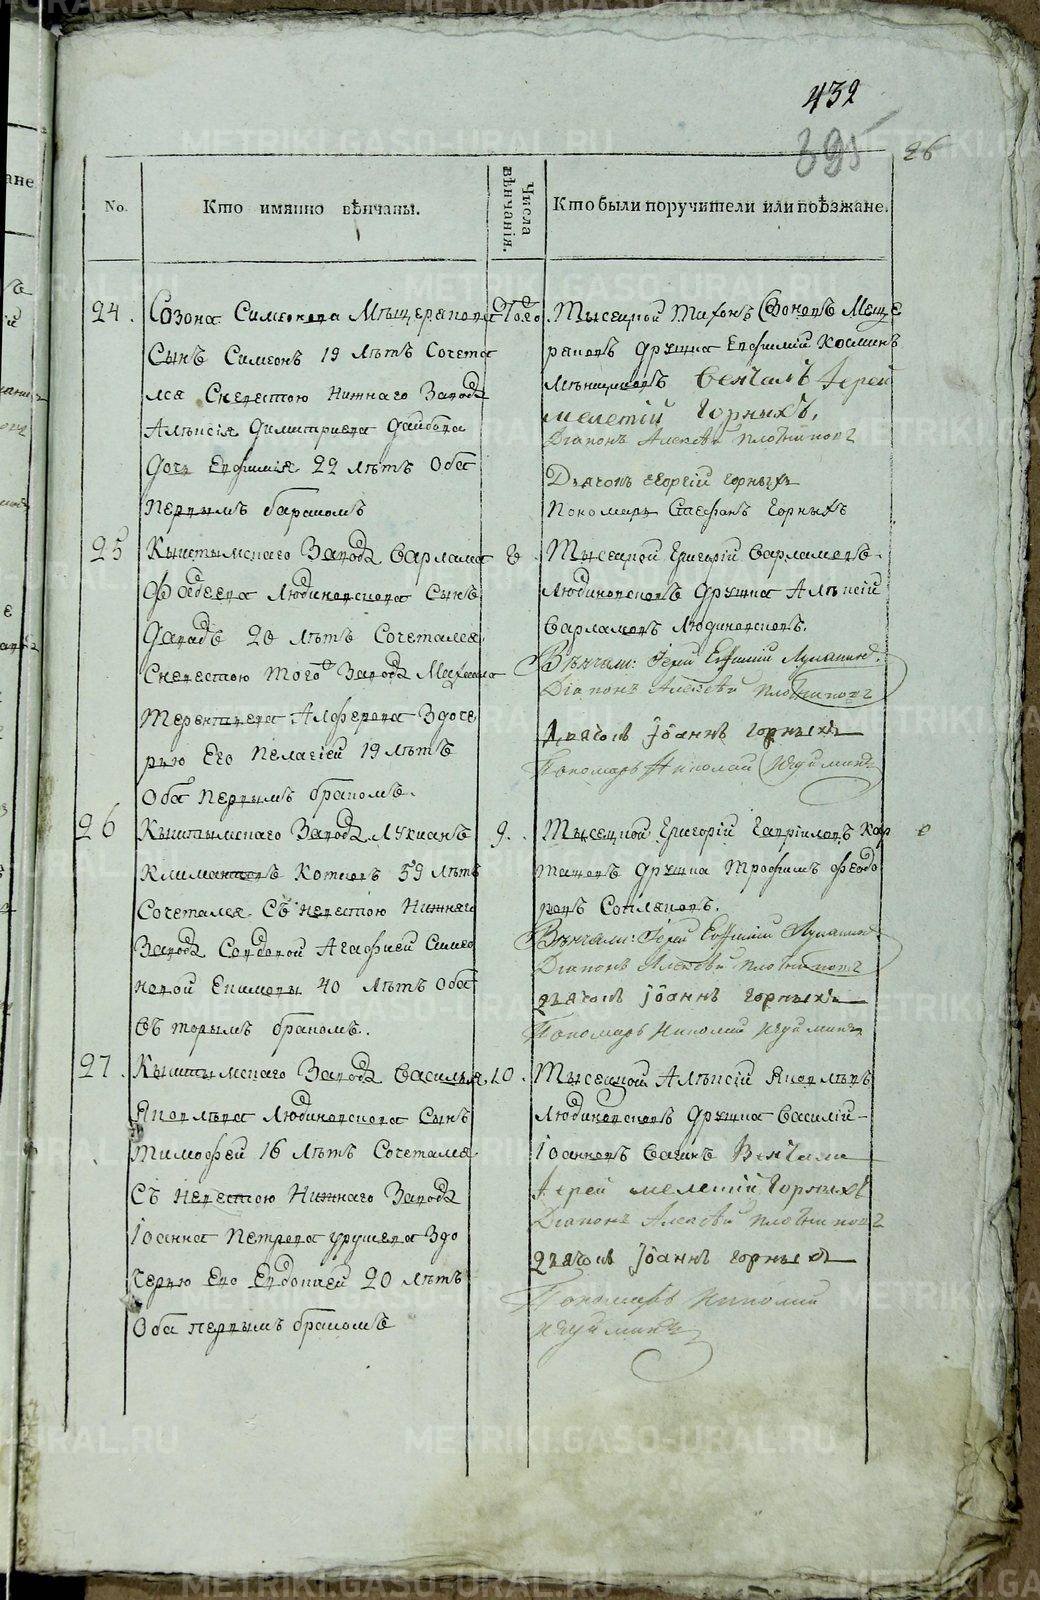 432
395
26
No.
Кто имянно вѣнчаны.
Числа вѣнчанія.
Кто были поручители или поѣзжане.
24. Созона Симеонова Мѣщерякова
Сынъ Симеонъ 19 лѣтъ Сочета
лся Сневестою Нижнаго Завода
Алѣксія Димитриева
дочь Евфимія 22 лѣтъ Оба
первымъ бракомъ
Того
Тысецкой Тихонъ Созоновъ Меще
ряковъ дружка Евфимій Козминъ
Венчалъ Іерей
мелетій Горныхъ.
Діаконъ Алексѣй плотниковъ
Дьячокъ георгій горныхъ
Пономарь Стефанъ Горныхъ
25 Кыштымскаго Завода Варлама
Фадеева Людиновскова Сынъ
20 лѣтъ Сочетался
Сневестою того Завода
Терентьева Алферова Здоче
рью Его Пелагіей 19 лѣтъ
Оба первымъ бракомъ.
Тысецкой Григорій Варламовъ
Людиновсковъ Дружка Алѣксій
Варламовъ Людиновсковъ.
Вѣнчали: Іерей Евфимій Лукания
Діаконъ Алексѣй плотниковъ
дьячокъ Іоаннъ горныхъ
Пономарь Николай
26 Кыштымскаго Завода Лукианъ
Климантовъ Котовъ 59 лѣтъ
Сочетался Съ невестою Нижняго
Завода Вдовой Агафией Симео
новой 40 лѣтъ Оба
Вторымъ бракомъ.
9.
Тысецкой Григорій Гавріиловъ Кар
ташовъ дружка Трофимъ Феодо
ровъ Сопляковъ.
Вѣнчали: Іерей Евфимій
Діаконъ Алексѣй плотниковъ
дьячокъ Іоаннъ горныхъ
Пономарь Николай
27. Кыштымскаго Завода Василья
Яковлева Людиновскова Сынъ
Тимофей 16 лѣтъ Сочетался
Съ невестою Нижнаго Завода
Іоанна Петрова Урушева Здо
черью Его Евдокией 20 лѣтъ
Оба первымъ бракомъ
10.
Тысецкой Алѣксій Яковлевъ
Людиновсковъ Дружка Василій
Іоанновъ Вагинъ Венчали
Іерей мелетій Горныхъ
Діаконъ Алексѣй плотниковъ
дьячокъ Іоаннъ горныхъ
Пономарь Николай